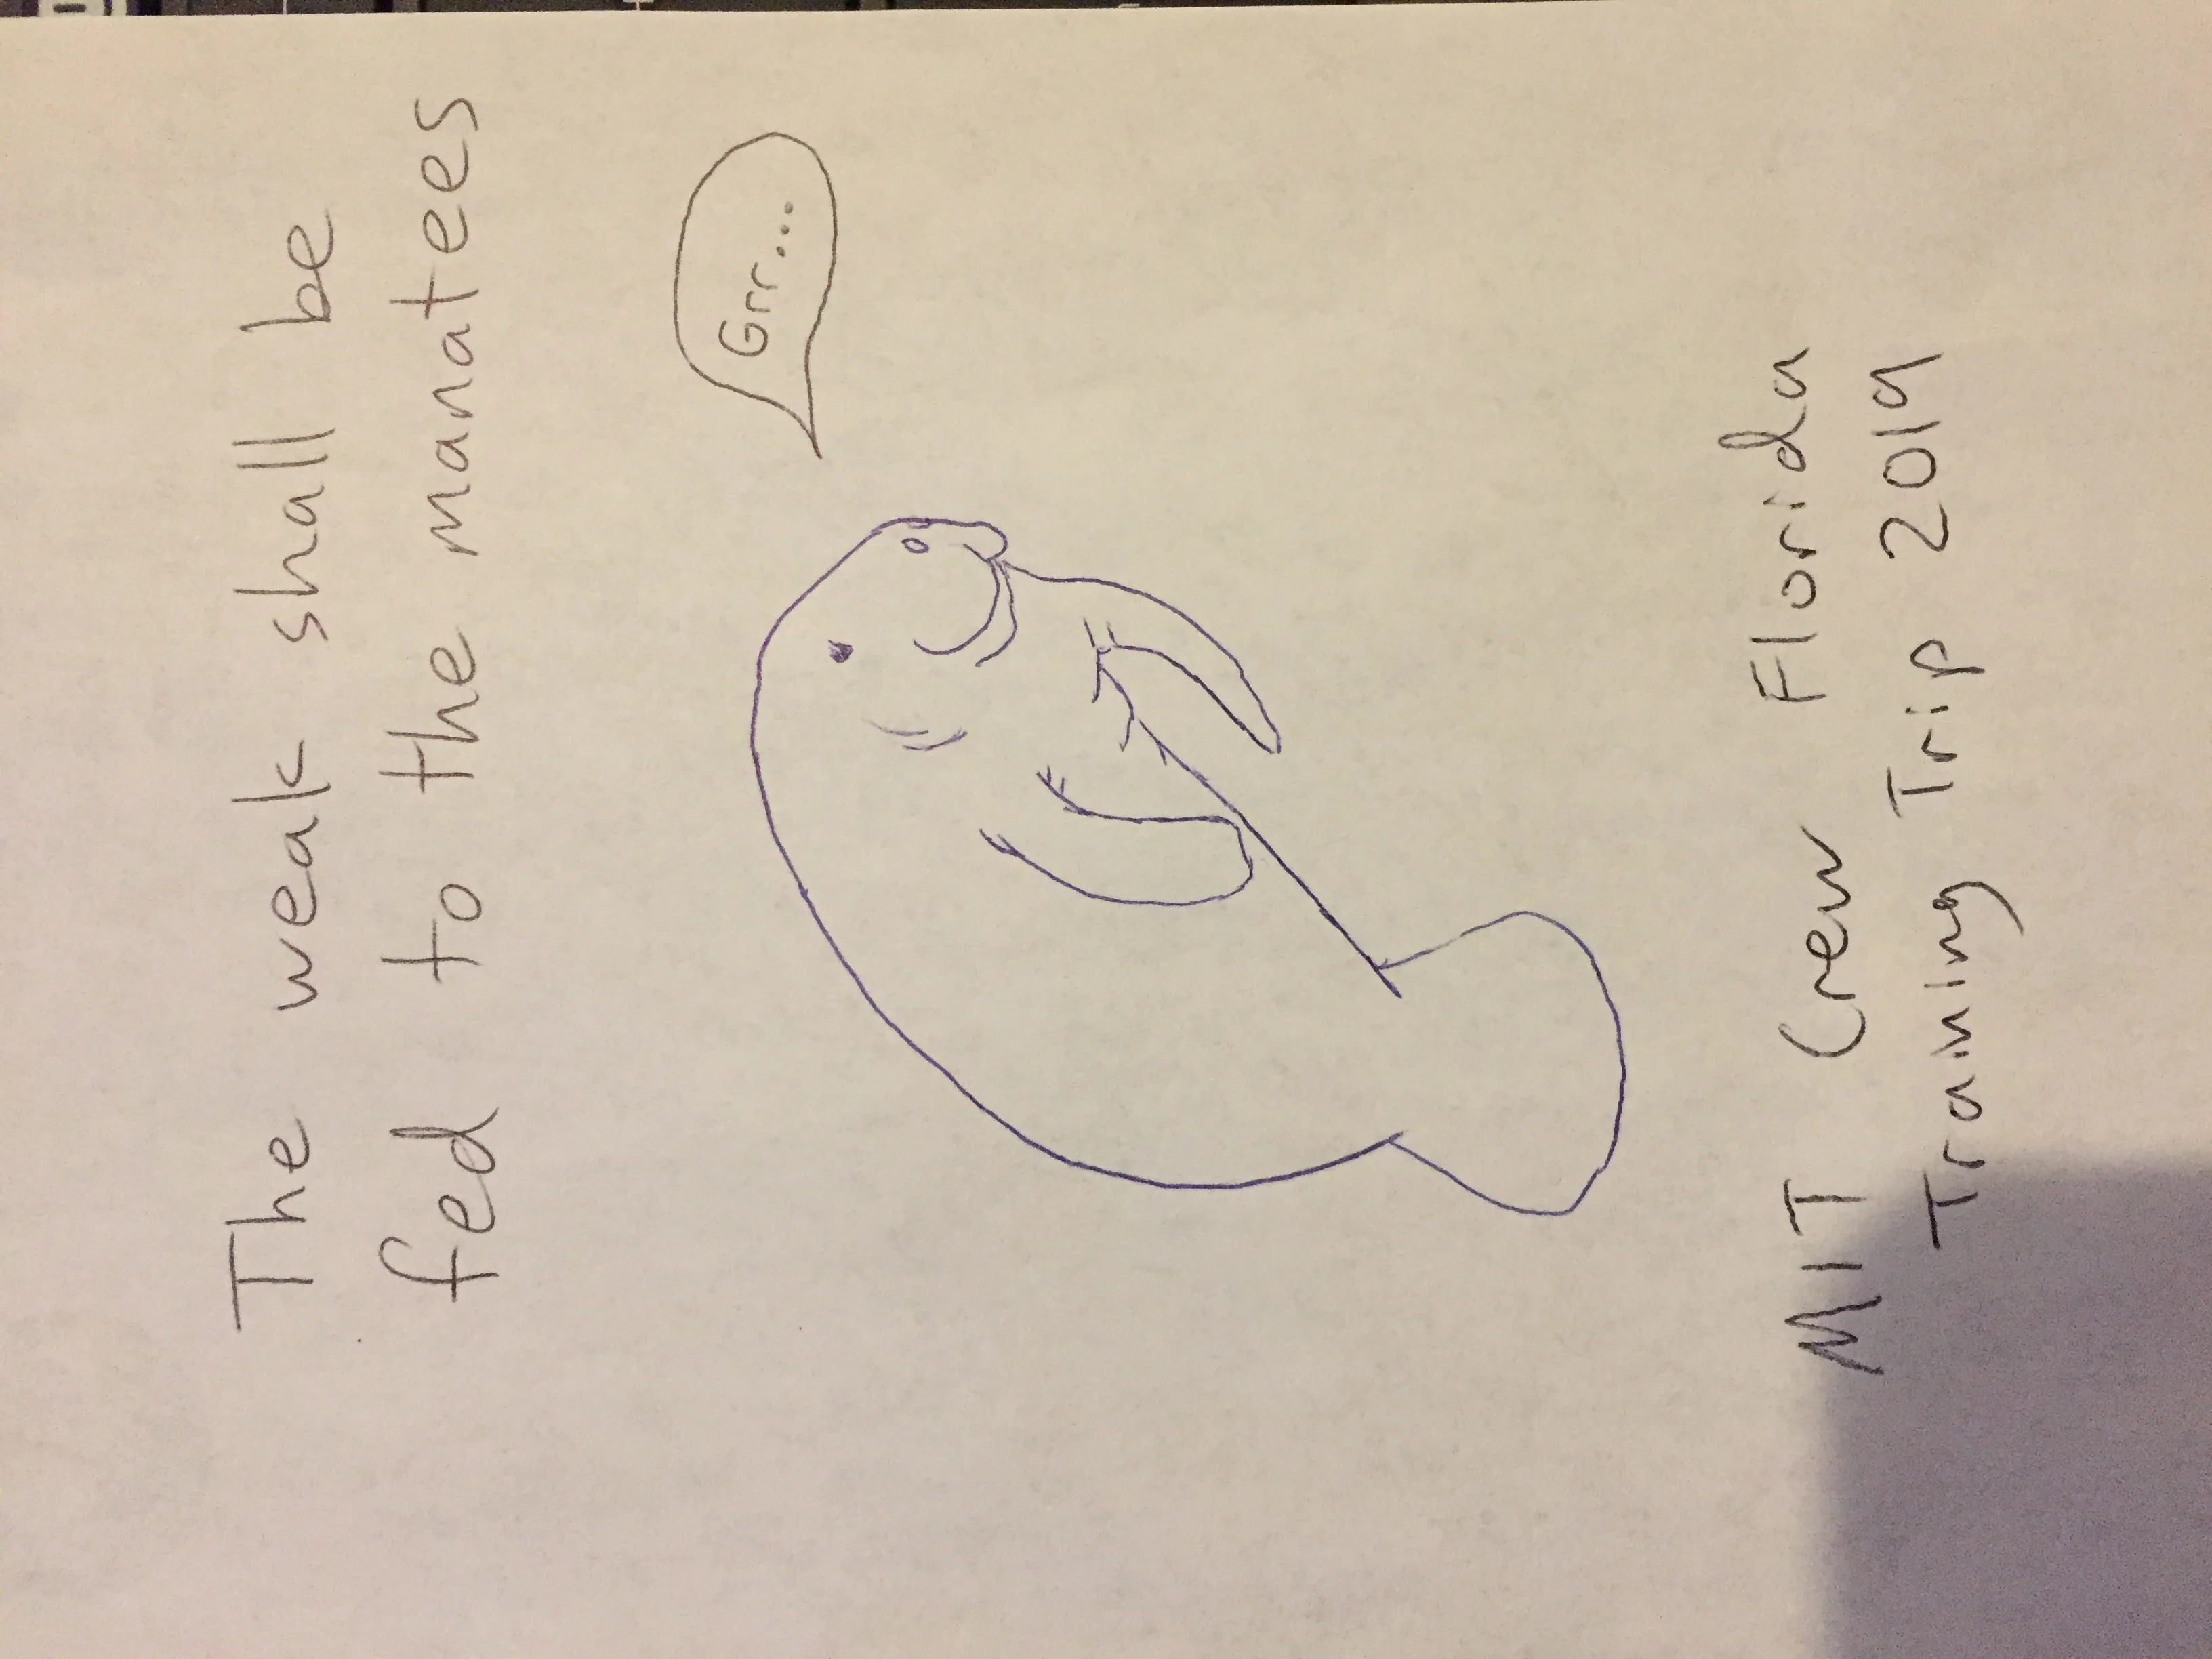 The weak shall be
fed to the manatees
Grr...
MIT Crew Florida
Training Trip 2019